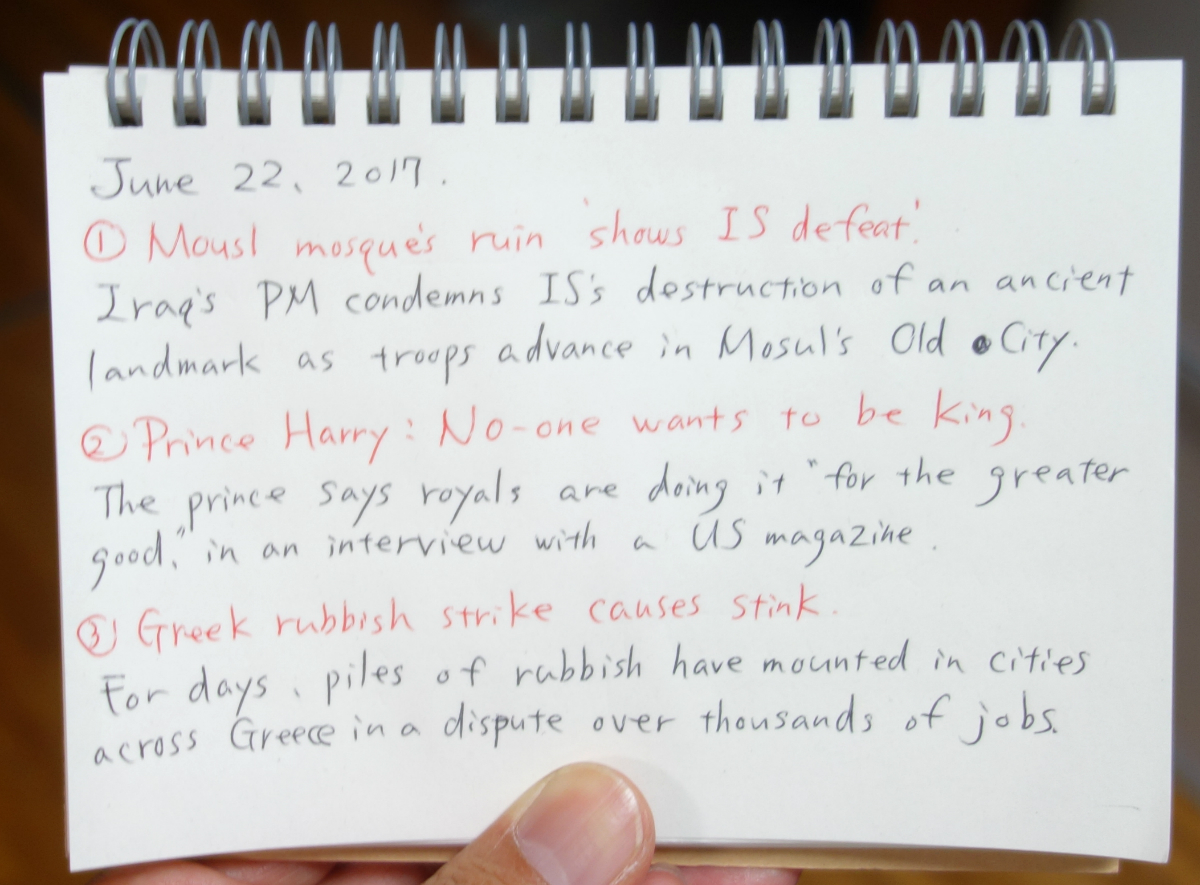 June 22、2017.
① Mousl mosque's ruin 'shows IS defeat'.
Iraq's PM condemns IS's destruction of an ancient
landmark as troops advance in Mosul's Old City.
② Prince Harry: No-one wants to be king.
The prince says royals are doing it "for the greater
good," in an interview with a US magazine.
③ Greek rubbish strike causes stink.
For days、piles of rubbish have mounted in cities
across Greece in a dispute over thousands of jobs.